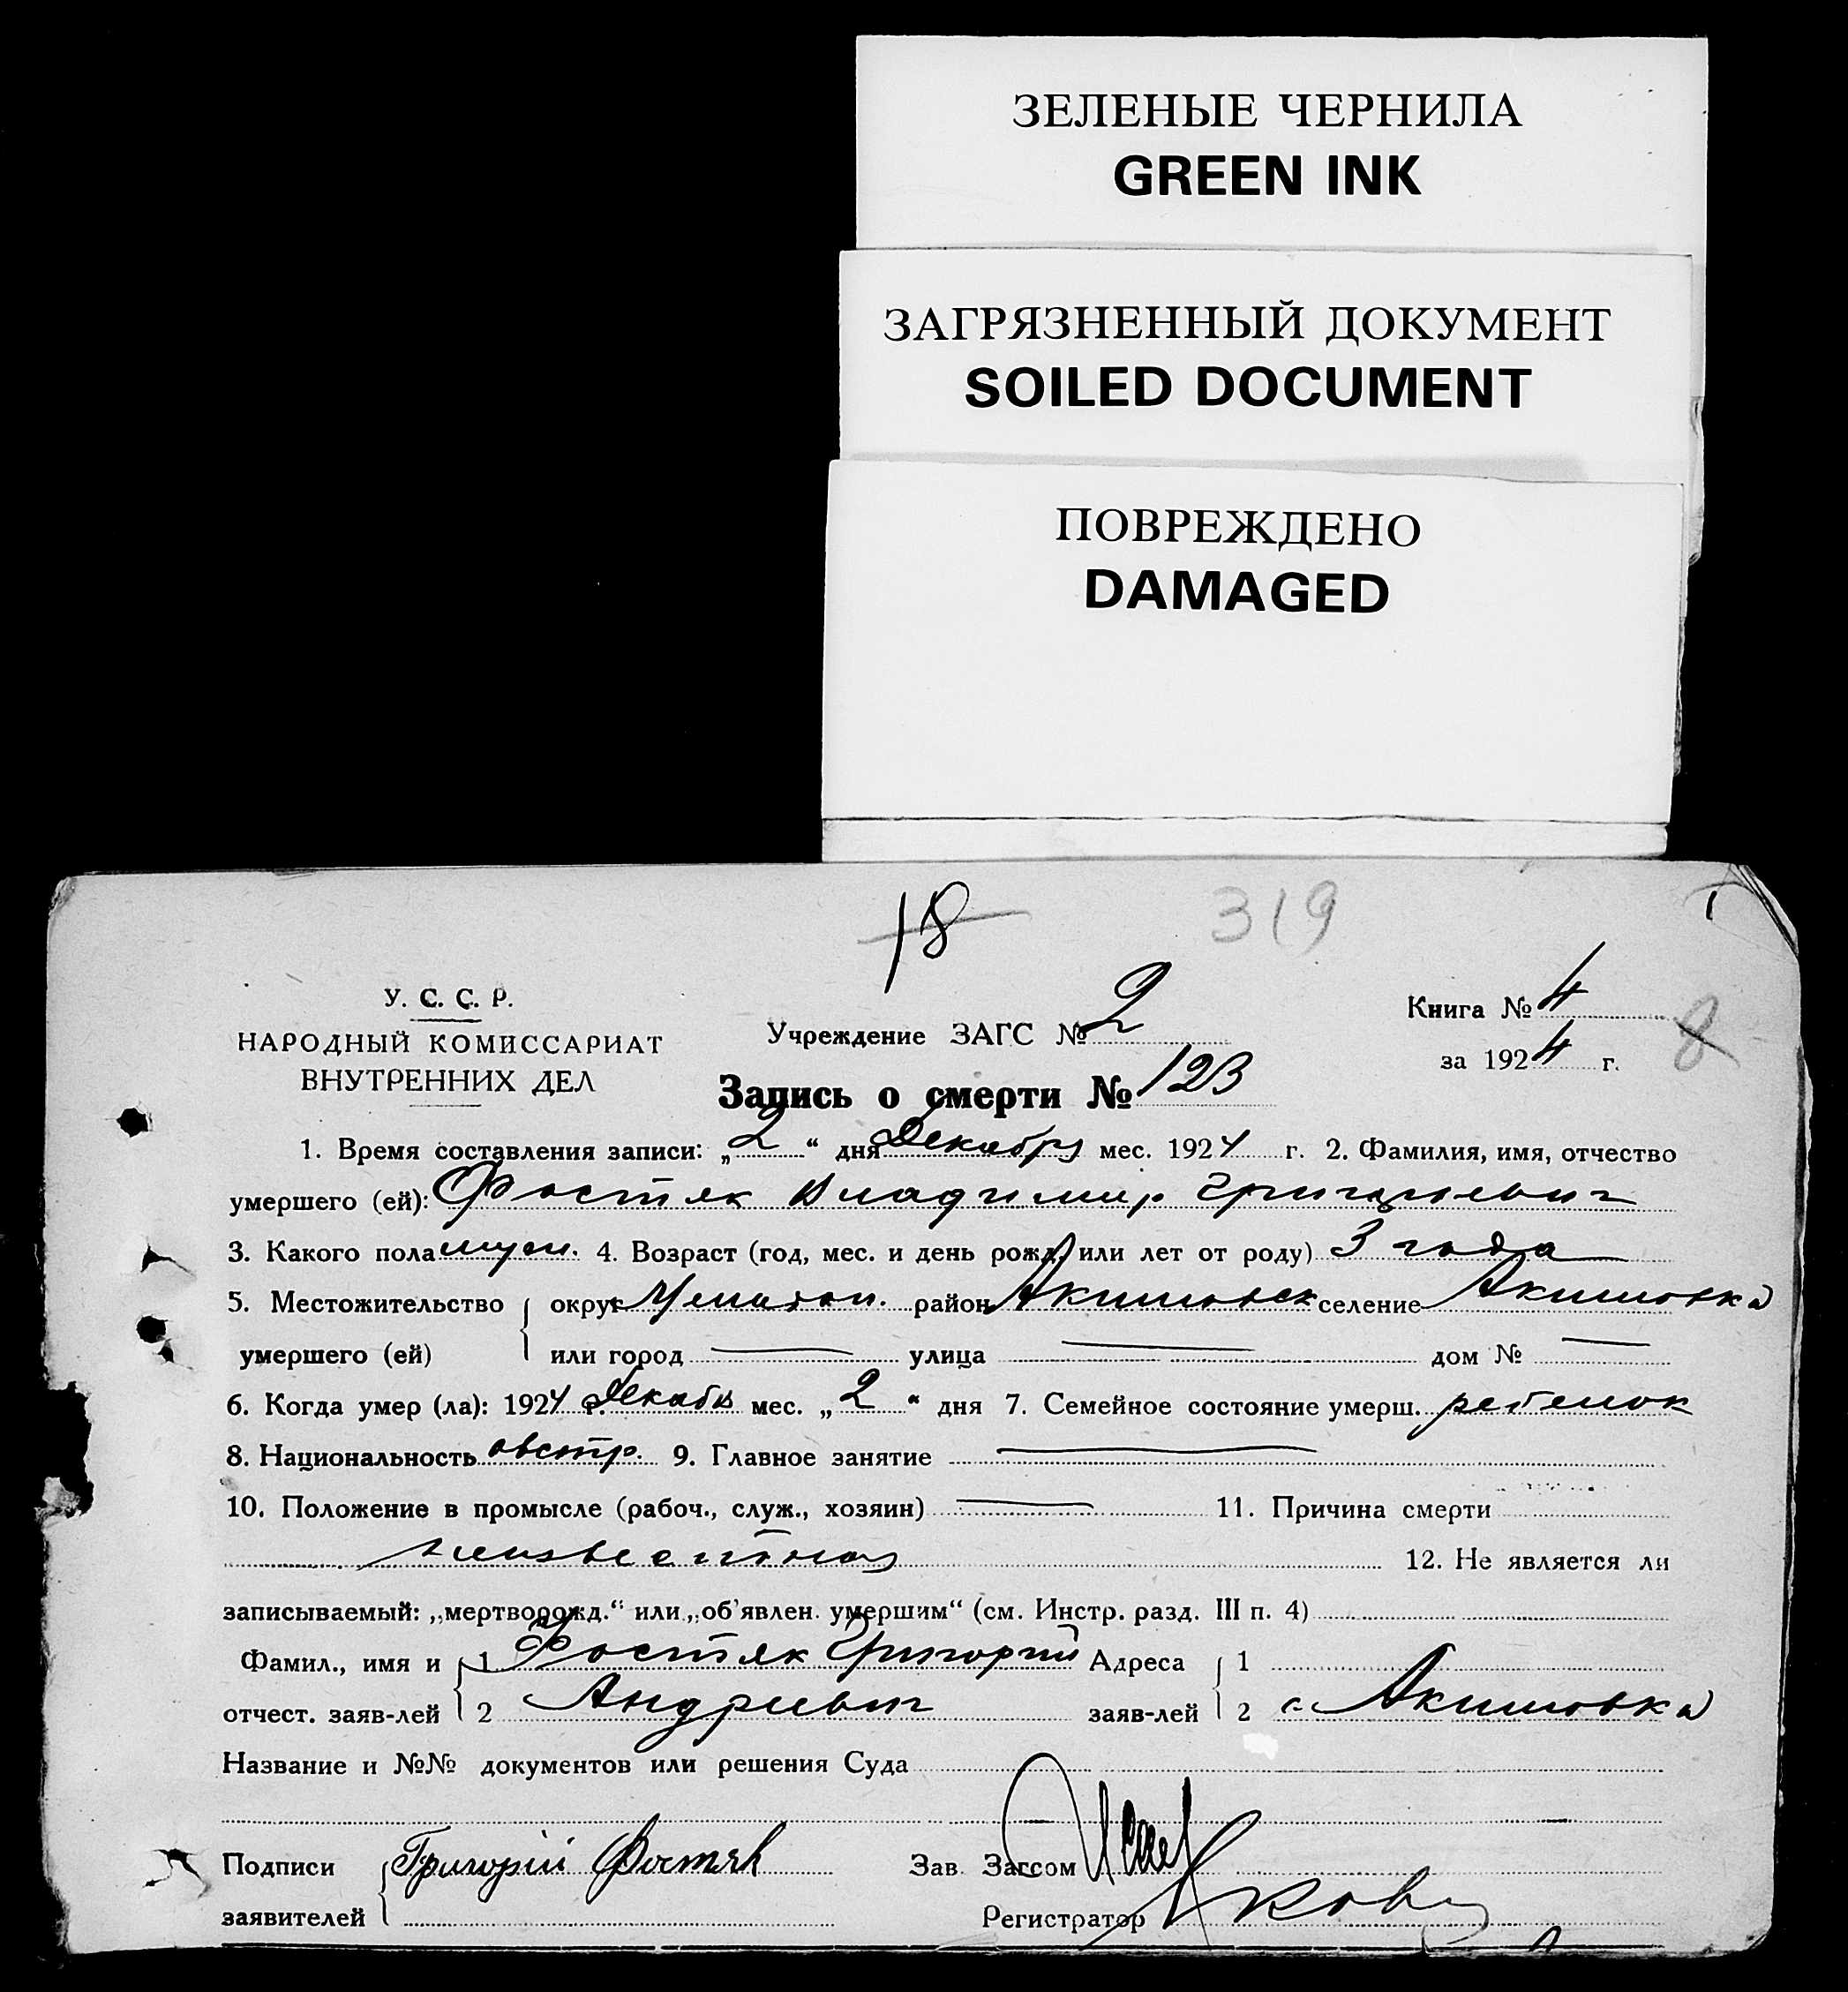 ЗЕЛЕНЫЕ ЧЕРНИЛА
GREEN INK
ЗАГРЯЗНЕННЫЙ ДОКУМЕНТ
SOILED DOCUMENT
ПОВРЕЖДЕНО
DAMAGED
18 319 1
У. С. С. Р.
НАРОДНЫЙ КОМИССАРИАТ
ВНУТРЕННИХ ДЕЛ
Учреждение ЗАГС № 2
Книга № 4
за 1924 г. 8
Запись о смерти № 123
1. Время составления записи: „2“ дня Декабря мес. 1924 г. 2. Фамилия, имя, отчество
умершего (ей): Фостяк Владимир Григорьевич
3. Какого пола муж. 4. Возраст (год, мес. и день рожд. или лет от роду) 3 года
5. Местожительство округ район Акимовск селение Акимовка
умершего (ей) или город — улица — дом № —
6. Когда умер (ла): 1924 г. Декабр мес. „2“ дня 7. Семейное состояние умерш. ребенок
8. Национальность австр. 9. Главное занятие —
10. Положение в промысле (рабоч., служ., хозяин) — 11. Причина смерти
неизвестная 12. Не является ли
записываемый: „мертворожд.“ или „об'явлен. умершим“ (см. Инстр. разд. III п. 4)
Фамил., имя и 1 Фостяк Григорий Адреса 1
отчест. заяв-лей 2 Андриевич заяв-лей 2 с. Акимовка
Название и №№ документов или решения Суда
Подписи Григорій Фостяк Зав. Загсом
заявителей Регистратор